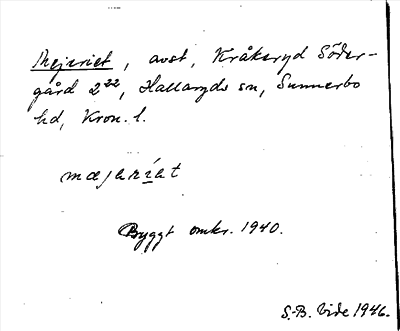 Mejeriet, avst, Kråkeryd Söder-
gård 2²², Hallaryds sn, Sunnerbo
hd, Kron. l.
mæjəríət
Byggt omkr. 1940.
S.-B. Vide 1946.